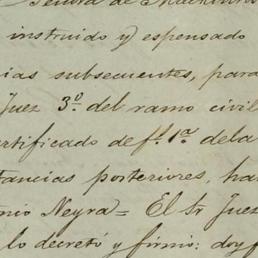 Señora de
instruido y espensado
ias subsecuentes, para
Juez 3º. del ramo civil
ertificado de f. 1ª. de la
tancias posteriores, ha
nio Neyra = El Sr Juez
lo decretó y firmó: doy f